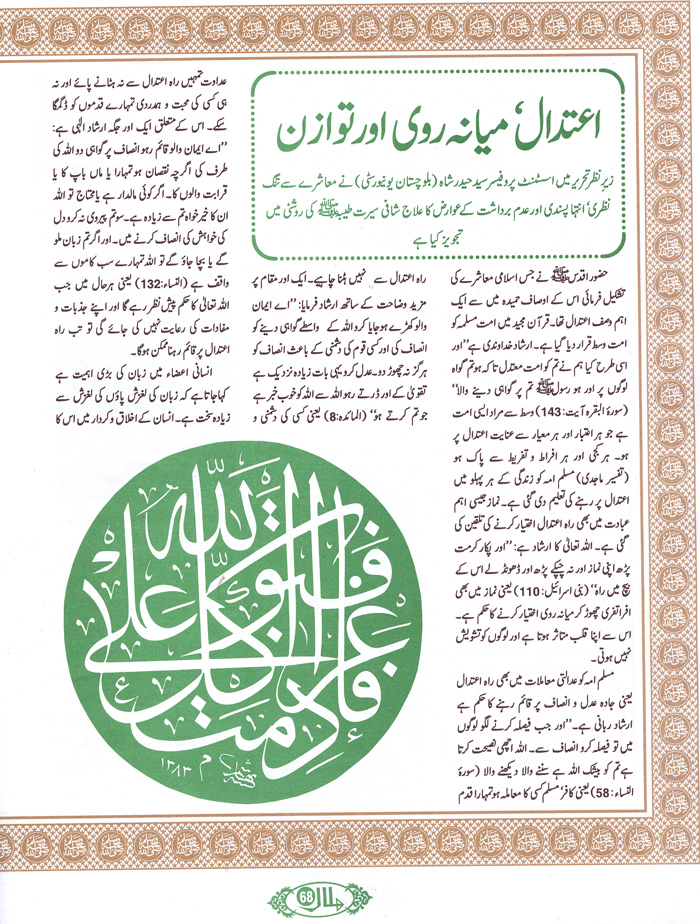 اعتدال، میانہ روی اور توازن
زیر نظر تحریر میں اسسٹنٹ پروفیسر سید حیدر شاہ (بلوچستان یونیورسٹی) نے معاشرے سے تنگ
نظری، انتہا پسندی اور عدم برداشت کے عوارض کا علاج شافی سیرت طیبہ ﷺ کی روشنی میں
تجویز کیا ہے
حضور اقدس ﷺ نے جس اسلامی معاشرے کی
تشکیل فرمائی اس کے اوصاف حمیدہ میں سے ایک
اہم وصف اعتدال تھا۔ قرآن مجید میں امت مسلمہ کو
امت وسط قرار دیا گیا ہے۔ ارشاد خداوندی ہے ’’اور
اسی طرح کیا ہم نے تم کو امت معتدل تاکہ ہو تم گواہ
لوگوں پر اور ہو رسول ﷺ تم پر گواہی دینے والا‘‘
(سورۃ البقرہ آیت: 143) وسط سے مراد ایسی امت
ہے جو ہر اعتبار اور ہر معیار سے غایت اعتدال پر
ہو۔ ہر کجی اور ہر افراط و تفریط سے پاک ہو
(تفسیر ماجدی) مسلم امہ کو زندگی کے ہر پہلو میں
اعتدال پر رہنے کی تعلیم دی گئی ہے۔ نماز جیسی اہم
عبادت میں بھی راہ اعتدال اختیار کرنے کی تلقین کی
گئی ہے۔ اللہ تعالیٰ کا ارشاد ہے: ’’اور پکار کر مت
پڑھ اپنی نماز اور نہ چپکے پڑھ اور ڈھونڈ لے اس کے
بیچ میں راہ‘‘ (بنی اسرائیل: 110) یعنی نماز میں بھی
افراتفری چھوڑ کر میانہ روی اختیار کرنے کا حکم ہے۔
اس سے اپنا قلب متاثر ہوتا ہے اور لوگوں کو تشویش
نہیں ہوتی۔
مسلم امہ کو عدالتی معاملات میں بھی راہ اعتدال
یعنی جادہ عدل و انصاف پر قائم رہنے کا حکم ہے
ارشاد ربانی ہے۔ ’’اور جب فیصلہ کرنے لگو لوگوں
میں تو فیصلہ کرو انصاف سے۔ اللہ اچھی نصیحت کرتا
ہے تم کو بیشک اللہ ہے سننے والا دیکھنے والا (سورۃ
النساء: 58) یعنی کافر، مسلم کسی کا معاملہ ہو تمہارا قدم
راہ اعتدال سے نہیں ہٹنا چاہیے۔ ایک اور مقام پر
مزید وضاحت کے ساتھ ارشاد فرمایا: ’’اے ایمان
والو کھڑے ہو جایا کرو اللہ کے واسطے گواہی دینے کو
انصاف کی اور کسی قوم کی دشمنی کے باعث انصاف کو
ہرگز نہ چھوڑ دو۔ عدل کرو یہی بات زیادہ نزدیک ہے
تقویٰ کے اور ڈرتے رہو اللہ سے اللہ کو خوب خبر ہے
جو تم کرتے ہو‘‘ (المائدہ: 8) یعنی کسی کی دشمنی و
عداوت تمہیں راہ اعتدال سے نہ ہٹانے پائے اور نہ
ہی کسی کی محبت و ہمدردی تمہارے قدموں کو ڈگمگا
سکے۔ اس کے متعلق ایک اور جگہ ارشاد الٰہی ہے:
’’اے ایمان والو قائم رہو انصاف پر گواہی دو اللہ کی
طرف کی اگرچہ نقصان ہو تمہارا یا ماں باپ کا یا
قرابت والوں کا۔ اگر کوئی مالدار ہے یا محتاج تو اللہ
ان کا خیر خواہ تم سے زیادہ ہے۔ سو تم پیروی نہ کرو دل
کی خواہش کی انصاف کرنے میں۔ اور اگر تم زبان ملو
گے یا بچا جاؤ گے تو اللہ تمہارے سب کاموں سے
واقف ہے (النساء: 132) یعنی ہر حال میں جب
اللہ تعالیٰ کا حکم پیش نظر رہے گا اور اپنے جذبات و
مفادات کی رعایت نہیں کی جائے گی تو تب راہ
اعتدال پر قائم رہنا ممکن ہوگا۔
انسانی اعضاء میں زبان کی بڑی اہمیت ہے
کہا جاتا ہے کہ زبان کی لغزش پاؤں کی لغزش سے
زیادہ سخت ہے۔ انسان کے اخلاق و کردار میں اس کا
فإذا عزمت فتوكل على الله
م ١٣٨٣
ہلال 68